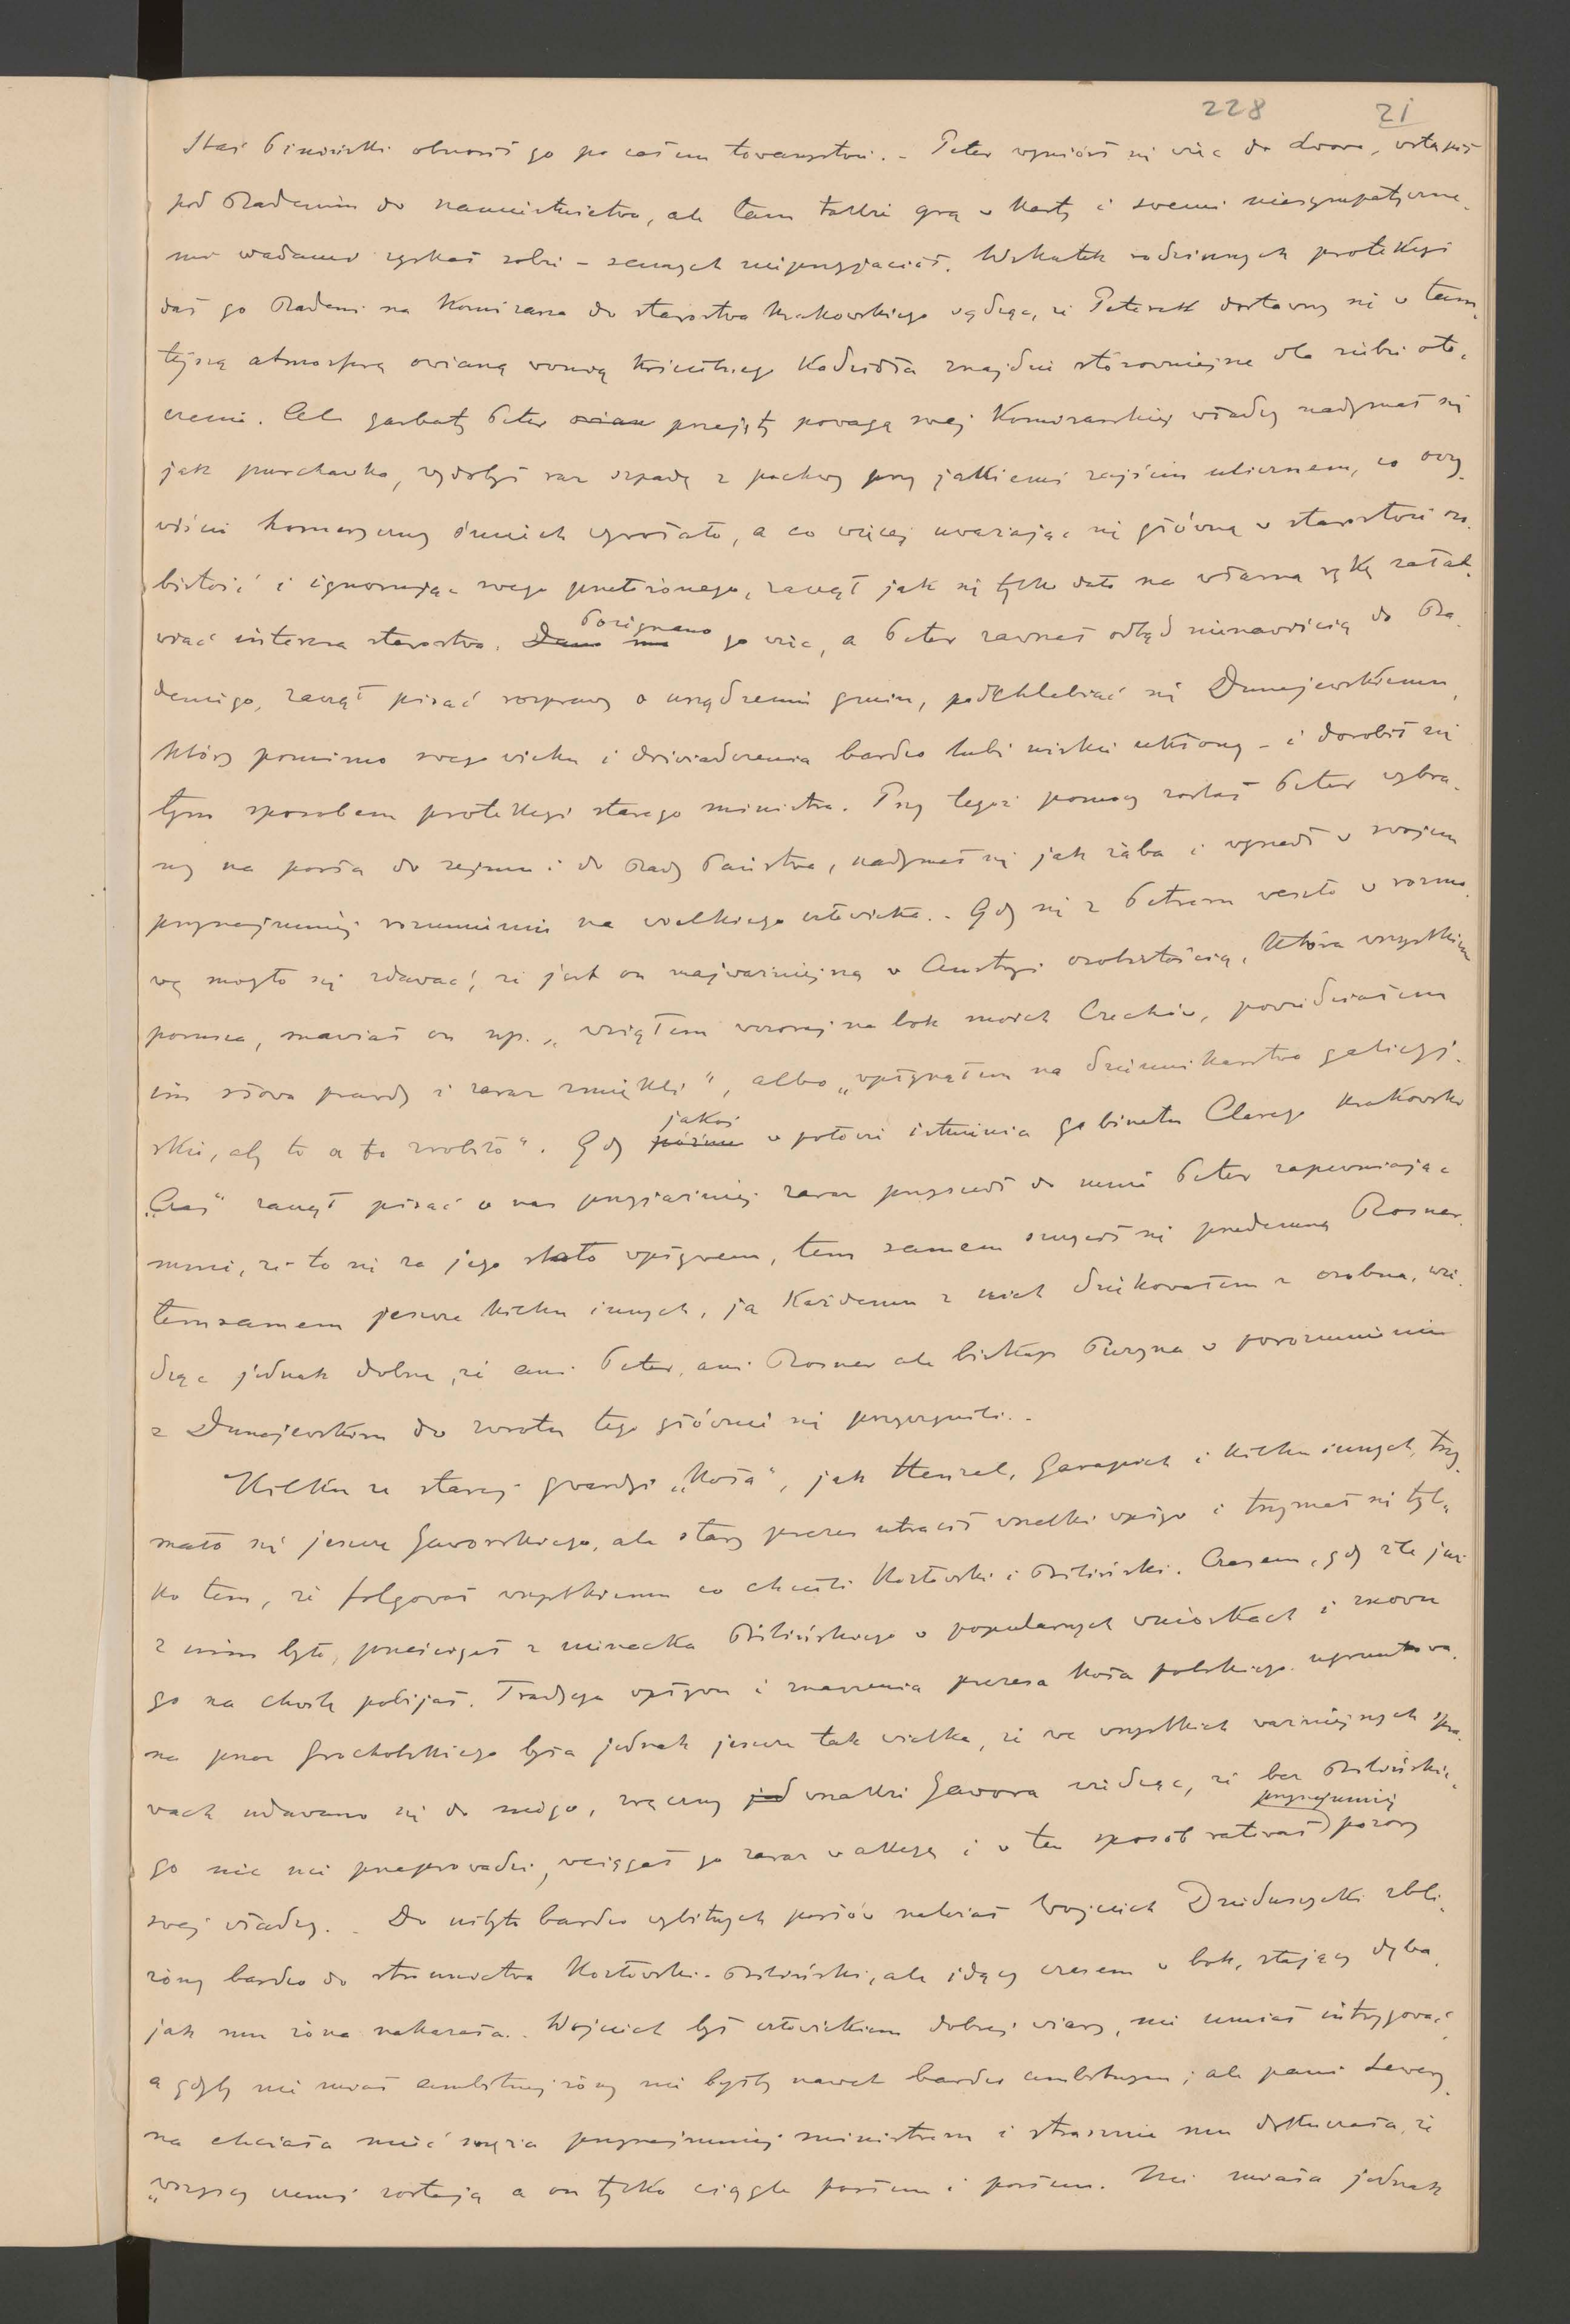 228 21
Staś Piniński obnosił go po całem towarzystwie. - Peter wyniósł się więc do Lwowa, wstąpił
pod Badenim do namiestnictwa, ale tam także grą w karty i swemi niesympatyczne-
mi wadami zyskał sobie - samych nieprzyjaciół. Wskutek rodzinnych protekcyi
dał go Badeni na komisarza do starostwa krakowskiego sądząc, że Peterek dostawszy się w tam-
tejszą atmosferę owianą wonią kadzidła znajdzie stosowniejsze dla siebie oto-
czenie. Ale garbaty Peter przejęty powagą swej komisarskiej władzy nadymał się
jak purchawka, wydobył raz szpadę z pochwy przy jakiemś zajściu ulicznem, co oczy-
wiście homeryczny śmiech wywołało, a co więcej uważając się główną w starostwie oso-
bistość i ignorując swego przełożonego, zaczął jak się tylko dało na własną rękę załat-
wiać interesa starostwa. Dano mu Pożegnano go więc, a Peter zawrzał odtąd nienawiścią do Ba-
deniego, zaczął pisać rozprawy o urządzeniu gmin, podchlebiać się Dunajewskiemu,
który pomimo swego wieku i doświadczenia bardzo lubi niskie ukłony - i dorobił się
tym sposobem protekcyi starego ministra. Przy tegoż pomocy został Peter wybra-
ny na posła do sejmu i do Rady Państwa, nadymał się jak żaba i wyszedł w swojem
przynajmniej rozumieniu na wielkiego człowieka. - Gdy się z Petrem weszło w rozmo-
wę mogło się zdawać, że jest on najważniejszą w Austryi osobistością, która wszystkiem
porusza, mawiał on np. „wziąłem wczoraj na bok moich Czechów, powiedziałem
im słowa prawdy i zaraz zmiękli", albo „wpłynąłem na dziennikarstwo galicyj-
skie, aby to a to zrobiło". Gdy jakoś w połowie istnienia gabinetu Clarego krakowski
„Czas" zaczął pisać o nas przyjaźniej zaraz przyszedł do mnie Peter zapewniając
mnie, że to się za jego stało wpływem, tem samem szczycił się przedemną Rosner,
temsamem jeszcze kilku innych, ja każdemu z nich dziękowałem z osobna, wie-
dząc jednak dobrze, że ani Peter, ani Rosner ale biskup Puzyna w porozumieniu
z Dunajewskim do zwrotu tego głównie się przyczynili. -
Kilku ze starej gwardyi „Koła", jak Henzel, Garapich i kilku innych, trzy-
mało się jeszcze Jaworskiego, ale stary prezes utracił wszelki wpływ i trzymał się tyl-
ko tem, że folgował wszystkiemu co chcieli Kozłowski i Biliński. Czasem, gdy źle już
z nim było, prześcigał z nienacka Bilińskiego w popularnych wnioskach i znowu
go na chwilę pobijał. Tradycya wpływu i znaczenia prezesa Koła polskiego ugruntowa-
na przez Grocholskiego była jednak jeszcze tak wielka, że we wszystkich ważniejszych spra-
wach udawano się do niego, zręczny wszakże Jawora widząc, że bez Bilińskie-
go nic nie przeprowadzi, wciągał go zaraz w akcyę i w ten sposób ratował przynajmniej pozory
swej władzy. - Do niezbyt bardzo wybitnych posłów należał Wojciech Dzieduszycki zbli-
żony bardzo do stronnictwa Kozłowski-Biliński, ale idący czasem w bok, stający dęba,
jak mu żona nakazała. Wojciech był człowiekiem dobrej wiary, nie umiał intrygować,
a gdyby nie miał ambitnej żony nie byłby nawet bardzo ambitnym; ale pani Sewery-
na chciała mieć męża przynajmniej ministrem i strasznie mu dokuczała, że
„wszyscy czemś zostają a on tylko ciągle posłem i posłem. Nie miała jednak